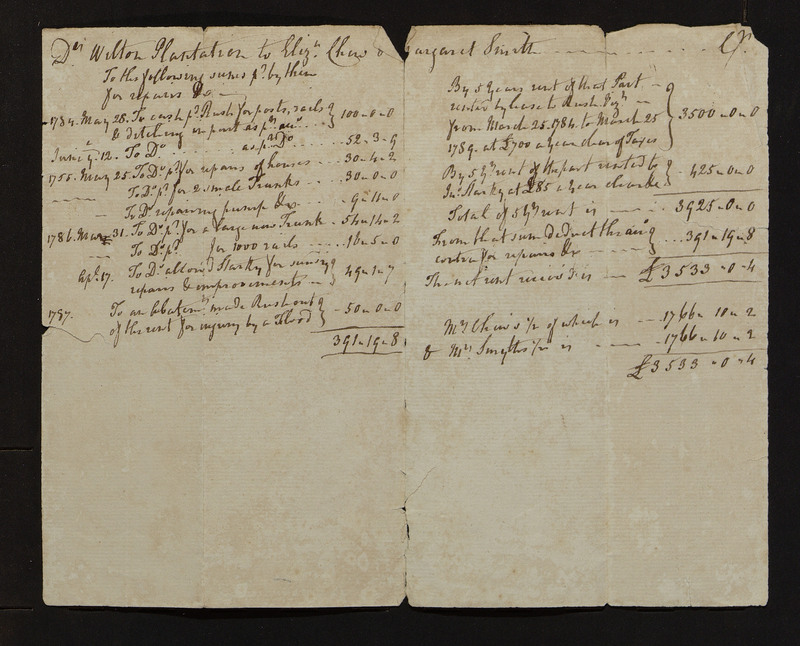 Drs Wilton Plantation to Elizh Chew & Margaret Smith Cr.
To the following sums pd. by them
for repairs &c
1784. May 28. To cash pd. Rush for posts, rails
& ditching in part as pr. acct 100..0..0
June 12. To Do as pr. Do 52..3..9
1785. May 25. To Do. pd. for repairs of houses 30..4..2
To Do. pd. for 2 small Trunks 30..0..0
To Do repairing pump &c. 9..11..0
1786. Mar 31. To Do. pd. for a large new Trunk 54..14..2
To Do. pd. for 1000 rails 16..5..0
Apl. 17. To Do. allowd Starky for sundry
repairs & improvements 49..1..7
1787. To an abatemt. made Rush out
of the rent for injury by a Flood 50..0..0
391..19..8
By 5 Years rent of that Part
rented by lease to Rush Vizt
from March 25. 1784. to March 25
1789. at £700 a year clear of Taxes 3500..0..0
By 5 yrs rent of the part rented to
Jno. Starky at £85 a year clear do 425..0..0
Total of 5 yrs rent is 3925..0..0
From that sum deduct the acct
contra for repairs &c 391..19..8
The net rent receivd is £3533..0..4
Mrs Chew's ½ of which is 1766..10..2
& Mrs Smyth's ½ is 1766..10..2
£3533..0..4